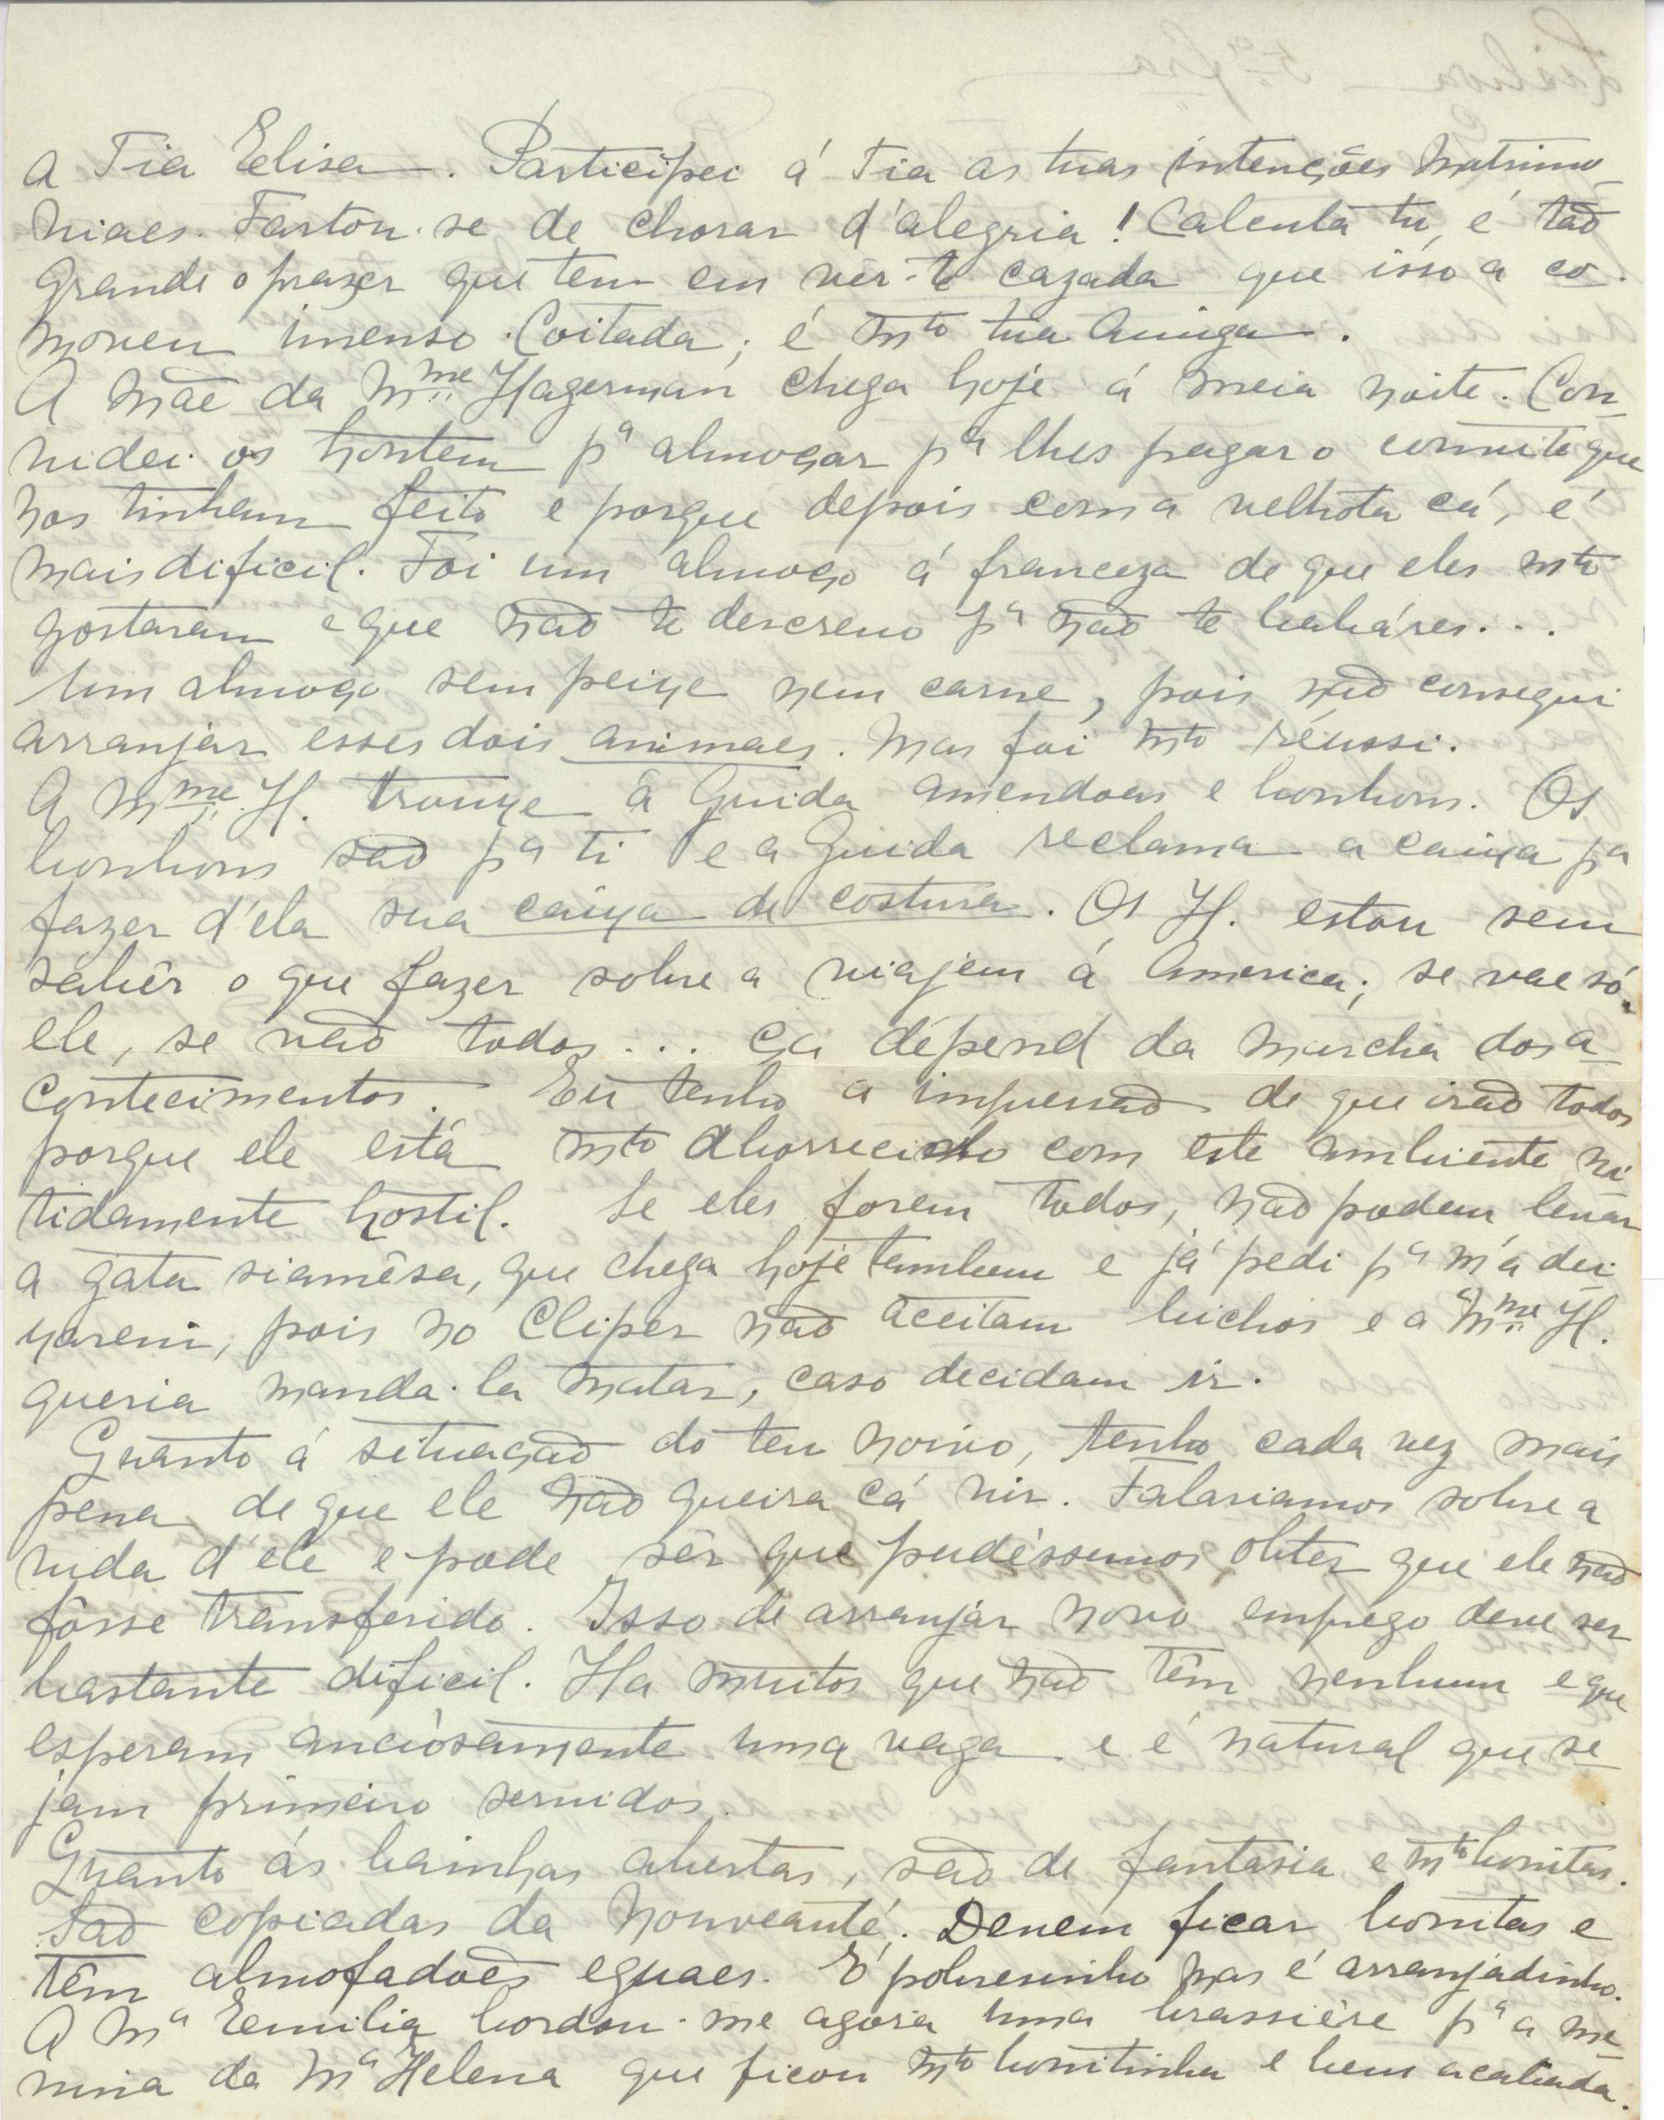 a Tia Elisa. Participei á Tia as tuas intenções matrimo
niaes. Fartou-se de chorar d'alegria! Calcula tu, é tão
grande o prazer que tem em ver-te cazada que isso a co-
moveu imenso. Coitada; é mto tua amiga.
A mãe da Mme Hagerman chega hoje á meia noite. Con-
videi-os hontem pa almoçar pa lhes pagar o convite que
nos tinham feito e porque depois com a velhota cá, é
mais dificil. Foi um almoço á franceza de que eles mto
gostaram e que não te descrevo pa não te babáres...
Um almoço sem peixe nem carne, pois não consegui
arranjar esses dois animaes. Mas foi mto réussi.
A Mme H. trouxe á Guida amendoas e bonbons. Os
bonbons são pa ti e a Guida reclama a caixa pa
fazer d'ela sua caixa de costura. Os H. estou sem
sabêr o que fazer sobre a viajem á America; se vae só
ele, se vão todos... Ça dépend da marcha dos a
contecimentos. Eu tenho a impressão de que irão todos
porque ele está mto aborrecido com este ambiente ni
tidamente hostil. Se eles forem todos, não podem levar
a gata siamêsa, que chega hoje tambem e já pedi pa m'a dei
xarem, pois no Cliper não aceitam bichos e a Mme H.
queria manda-la matar, caso decidam ir.
Quanto á situação do teu noivo, tenho cada vez mais
pena de que ele não queira cá vir. Falariamos sobre a
vida d'ele e pode sêr que pudéssemos obter que ele não
fôsse transferido. Isso de arranjar novo emprego deve ser
bastante dificil. Ha muitos que não têm nenhum e que
esperam anciósamente uma vaga e é natural que se-
jam primeiro servidos.
Quanto ás bainhas abertas, são de fantasia e mto bonitas.
São copiadas da Nouveauté. Devem ficar bonitas e
têm almofadões eguaes. É pobresinho mas é arranjadinho.
A Ma Emilia bordou-me agora uma brassière pa a me-
nina da Ma Helena que ficou mto bonitinha e bem acabada.